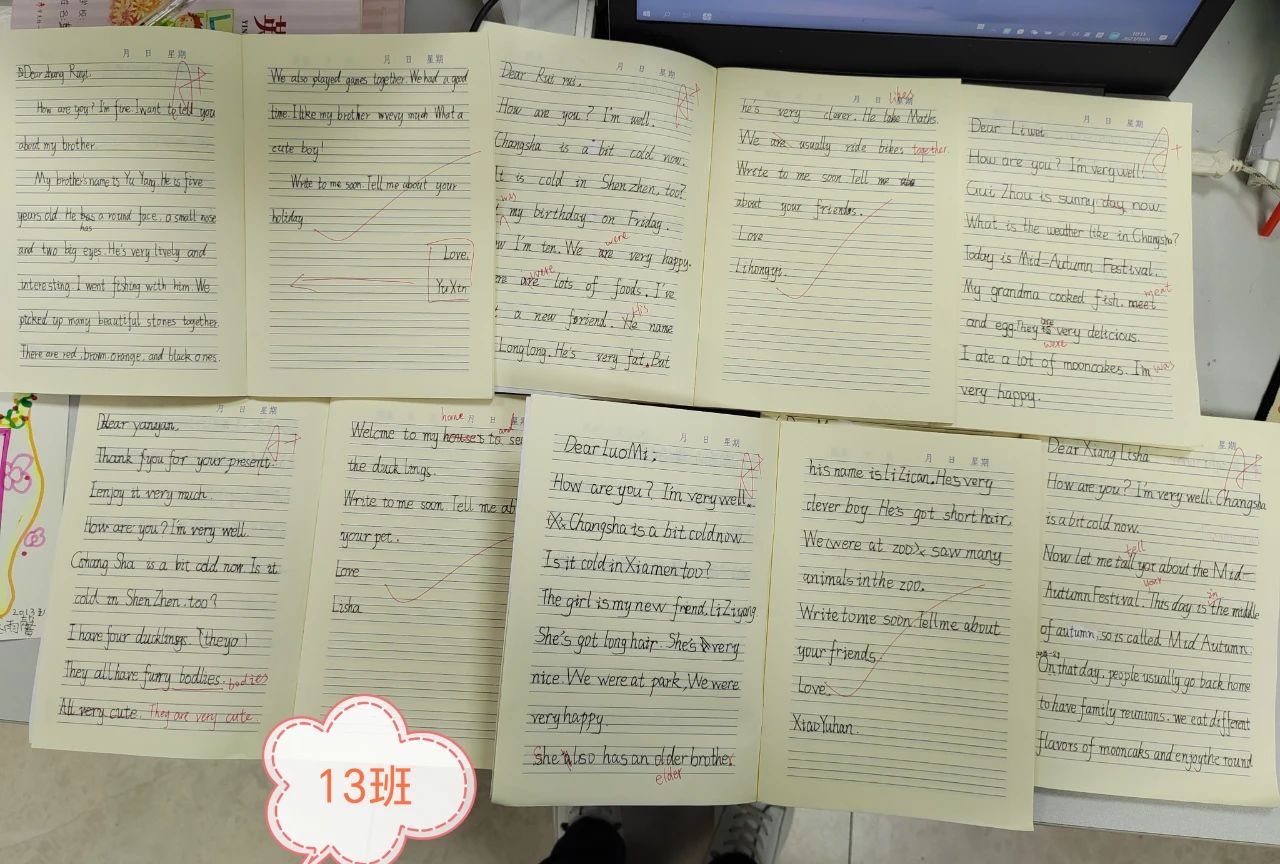 月 日 星期
Dear zhang Ruiyi.
How are you? I'm fine. I want to tell you
about my brother.
My brother's name is Yu Yang. He is five
years old. He has a round face, a small nose
has
and two big eyes. He's very lively and
interesting. I went fishing with him. We
picked up many beautiful stones together.
There are red, brown, orange, and black ones.
月 日 星期
We also played games together. We had a good
time. I like my brother very much. What a
cute boy!
Write to me soon. Tell me about your
holiday.
Love.
Yu Xin
月 日 星期
Dear Rui rui,
How are you? I'm well.
Changsha is a bit cold now.
It is cold in Shen zhen, too?
was
my birthday on Friday.
I'm ten. We are very happy.
were
are lots of foods. I've
were
a new friend. He name
His
Longlong. He's very fat. But
月 日 星期
he's very clever. He like Maths.
likes
We are usually ride bikes together.
Write to me soon Tell me
about your friends.
Love
Lihongyi.
月 日 星期
Dear Li wei
How are you? I'm very well!
Gui Zhou is sunny day now.
What is the weather like in Changsha?
Today is Mid-Autumn Festival.
My grandma cooked fish. meet
meat
and egg. They is very delicious.
are
were
I ate a lot of mooncakes. I'm
was
very happy.
月 日 星期
Dear yanyan,
Thank you for your present.
I enjoy it very much.
How are you? I'm very well.
Chang Sha is a bit cold now Is it
cold in Shen Zhen, too?
I have four ducklings. (theyo)
They all have furry bodlies. bodies
All very cute. They are very cute.
月 日 星期
home
and
Welcme to my houses to see
the ducklings.
Write to me soon. Tell me ab
your pet.
Love
Lisha
月 日 星期
Dear LuoMi,
How are you? I'm very well.
Changsha is a bit cold now.
Is it cold in Xiamen too?
The girl is my new friend. Li Ziyang
She's got long hair. She's very
nice. We were at park, We were
very happy.
She also has an older brother
elder
月 日 星期
his name is li Zican. He's very
clever boy. He's got short hair,
We (were at zoo) saw many
animals in the zoo.
Write to me soon Tell me about
your friends.
Love.
XiaoYuhan.
星期
Dear Xiang Lisha
How are you? I'm very well. Changsha
is a bit cold now.
tell
Now let me tall you about the Mid-
your
in
Autumn Festival. This day is the middle
of autumn, so is called Mid Autumn.
On that day, people usually go back home
to have family reunions. we eat different
flavors of mooncaks and enjoy the round
13班